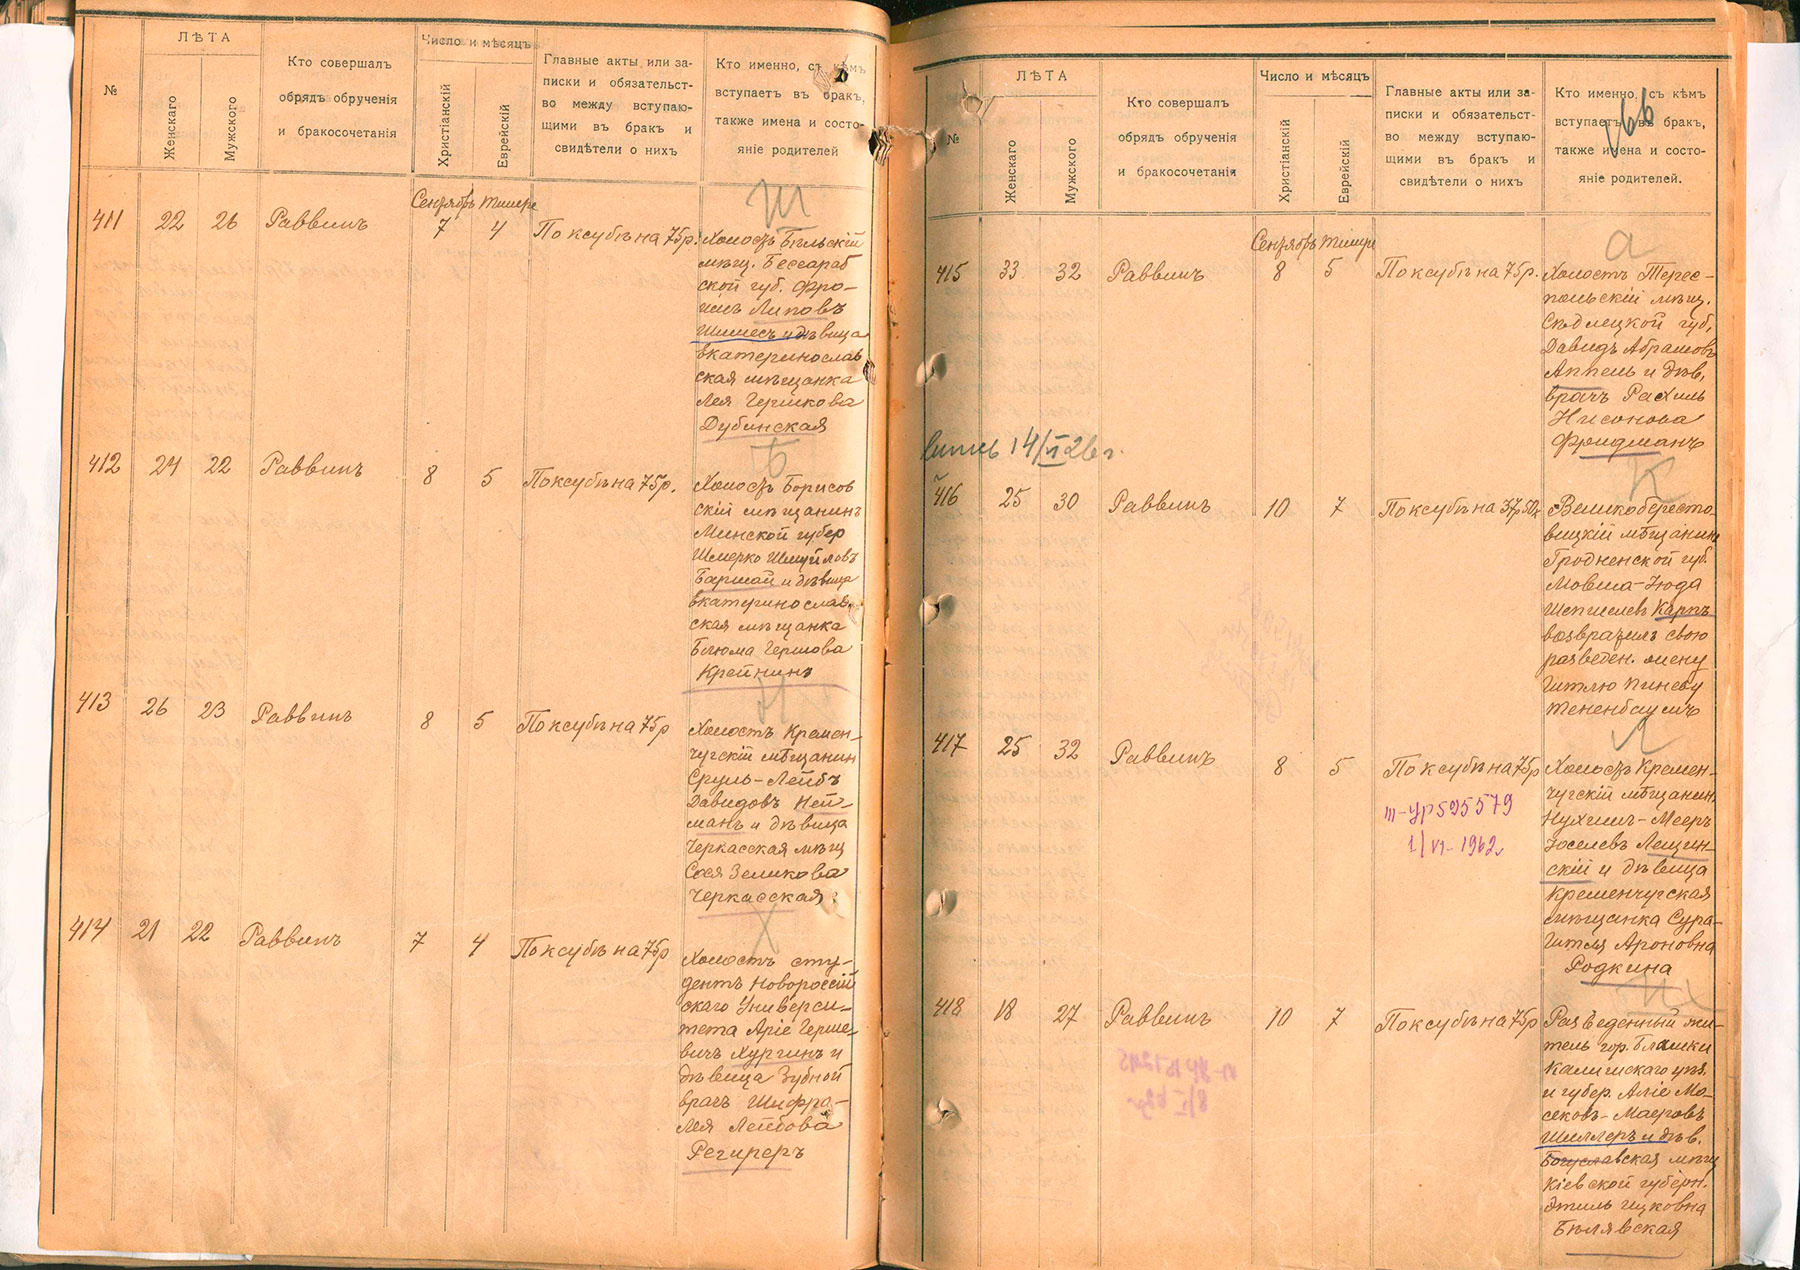 №
ЛѢТА
Женскаго
Мужского
Кто совершалъ
обрядъ обрученія
и бракосочетанія
Число и мѣсяцъ
Христіанскій
Еврейскій
Главные акты или за-
писки и обязательст-
во между вступаю-
щими въ бракъ и
свидѣтели о нихъ
Кто именно, съ кѣмъ
вступаетъ въ бракъ,
также имена и состо-
яніе родителей
Ш
Сентябрь Тишре
411 22 26 Раввинъ 7 4 По ксубѣ на 75р.
Холостъ Бѣльскій
мѣщ. Бессараб
ской губ. Фро-
имъ Липовъ
Шимесъ и дѣвица
екатеринослав
ская мѣщанка
Лея Гершкова
Дубинская
Б
412 24 22 Раввинъ 8 5 По ксубѣ на 75р.
Холостъ Борисов
скій мѣщанинъ
Минской губер
Шмерко Шмуйловъ
Баршай и дѣвица
екатеринослав
ская мѣщанка
Блюма Гершова
Крейнинъ
Н
413 26 23 Раввинъ 8 5 По ксубѣ на 75р
Холостъ Кремен-
чугскій мѣщанин
Сруль-Лейбъ
Давидовъ Ней-
манъ и дѣвица
Черкасская мѣщ
Сося Зеликова
Черкасская
Х
414 21 22 Раввинъ 7 4 По ксубѣ на 75р
Холостъ сту-
дентъ Новороссій
скаго Универси-
тета Аріе Герше-
вичъ Хургинъ и
дѣвица Зубной
врачъ Шифра-
Лея Лейбова
Региреръ
166
№
ЛѢТА
Женскаго
Мужского
Кто совершалъ
обрядъ обрученія
и бракосочетанія
Число и мѣсяцъ
Христіанскій
Еврейскій
Главные акты или за-
писки и обязательст-
во между вступаю-
щими въ бракъ и
свидѣтели о нихъ
Кто именно, съ кѣмъ
вступаетъ въ бракъ,
также имена и состо-
яніе родителей.
а
Сентябрь Тишре
415 33 32 Раввинъ 8 5 По ксубѣ на 75р.
Холостъ Терес-
польскій мѣщ.
Сѣдлецкой губ,
Давидъ Абрамовъ
Аппель и дѣв,
врачъ Рахиль
Нисонова
Фридманъ
14/VI 26 г.
К
416 25 30 Раввинъ 10 7 По ксубѣ на 37р 50к
Великобересто
вицкій мѣщанин
Гродненской губ.
Мовша-Іюда
Шепшелев Карпъ
возвратилъ свою
развѣден. жену
Гитлю Пиневу
Тененбаумъ
Л
417 25 32 Раввинъ 8 5 По ксубѣ на 75р
III-УР 595579
1/VI-1962г
Холостъ Кремен-
чугскій мѣщанин.
Нухим-Мееръ
Іоселевъ Лещин-
скій и дѣвица
Кременчугская
мѣщанка Сура-
Гитля Ароновна
Родкина
Ш
418 18 27 Раввинъ 10 7 По ксубѣ на 75р
Разведенный жи-
тель гор. Блашки
Калишскаго уѣз.
и губер. Аріе Мо-
сековъ-Маеровъ
Шиллеръ и дѣв.
Богуславская мѣщ
Кіевской губерн.
Этиль Ицковна
Бѣлявская